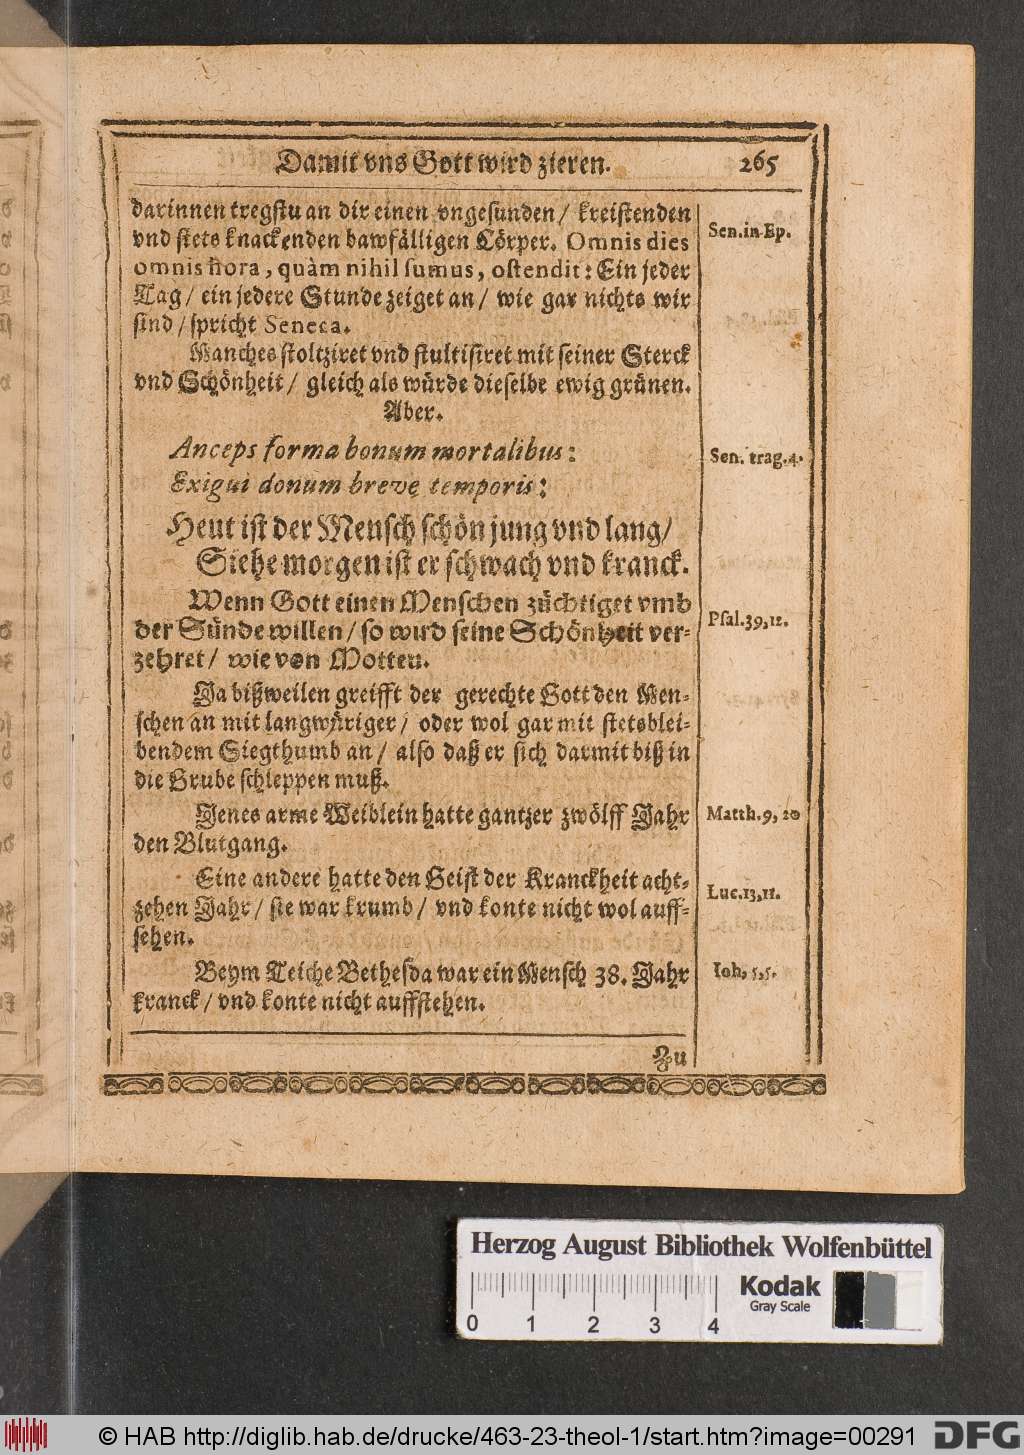 Damit vns Gott wird zieren. 265
darinnen tregstu an dir einen vngesunden / kreistenden
vnd stets knackenden bawfälligen Cörper. Omnis dies
Sen. in Ep.
omnis hora, quàm nihil sumus, ostendit: Ein jeder
Tag / ein jedere Stunde zeiget an / wie gar nichts wir
sind / spricht Seneca.
Manches stoltziret vnd stultisiret mit seiner Sterck
vnd Schönheit / gleich als würde dieselbe ewig grünen.
Aber.
Anceps forma bonum mortalibus:
Sen. trag. 4.
Exigui donum breve temporis:
Heut ist der Mensch schön jung vnd lang /
Siehe morgen ist er schwach vnd kranck.
Wenn Gott einen Menschen züchtiget vmb
der Sünde willen / so wird seine Schönheit ver-
Psal. 39, 12.
zehret / wie von Motten.
Ja bißweilen greifft der gerechte Gott den Men-
schen an mit langwüriger / oder wol gar mit stetsblei-
bendem Siegthumb an / also daß er sich darmit biß in
die Grube schleppen muß.
Jenes arme Weiblein hatte gantzer zwölff Jahr
Matth. 9, 20
den Blutgang.
Eine andere hatte den Geist der Kranckheit acht-
Luc. 13, 11.
zehen Jahr / sie war krumb / vnd konte nicht wol auff-
sehen.
Beym Teiche Bethesda war ein Mensch 38. Jahr
Ioh, 5, 5.
kranck / vnd konte nicht auffstehen.
Zu
Herzog August Bibliothek Wolfenbüttel
Kodak
Gray Scale
0 1 2 3 4
© HAB http://diglib.hab.de/drucke/463-23-theol-1/start.htm?image=00291
DFG